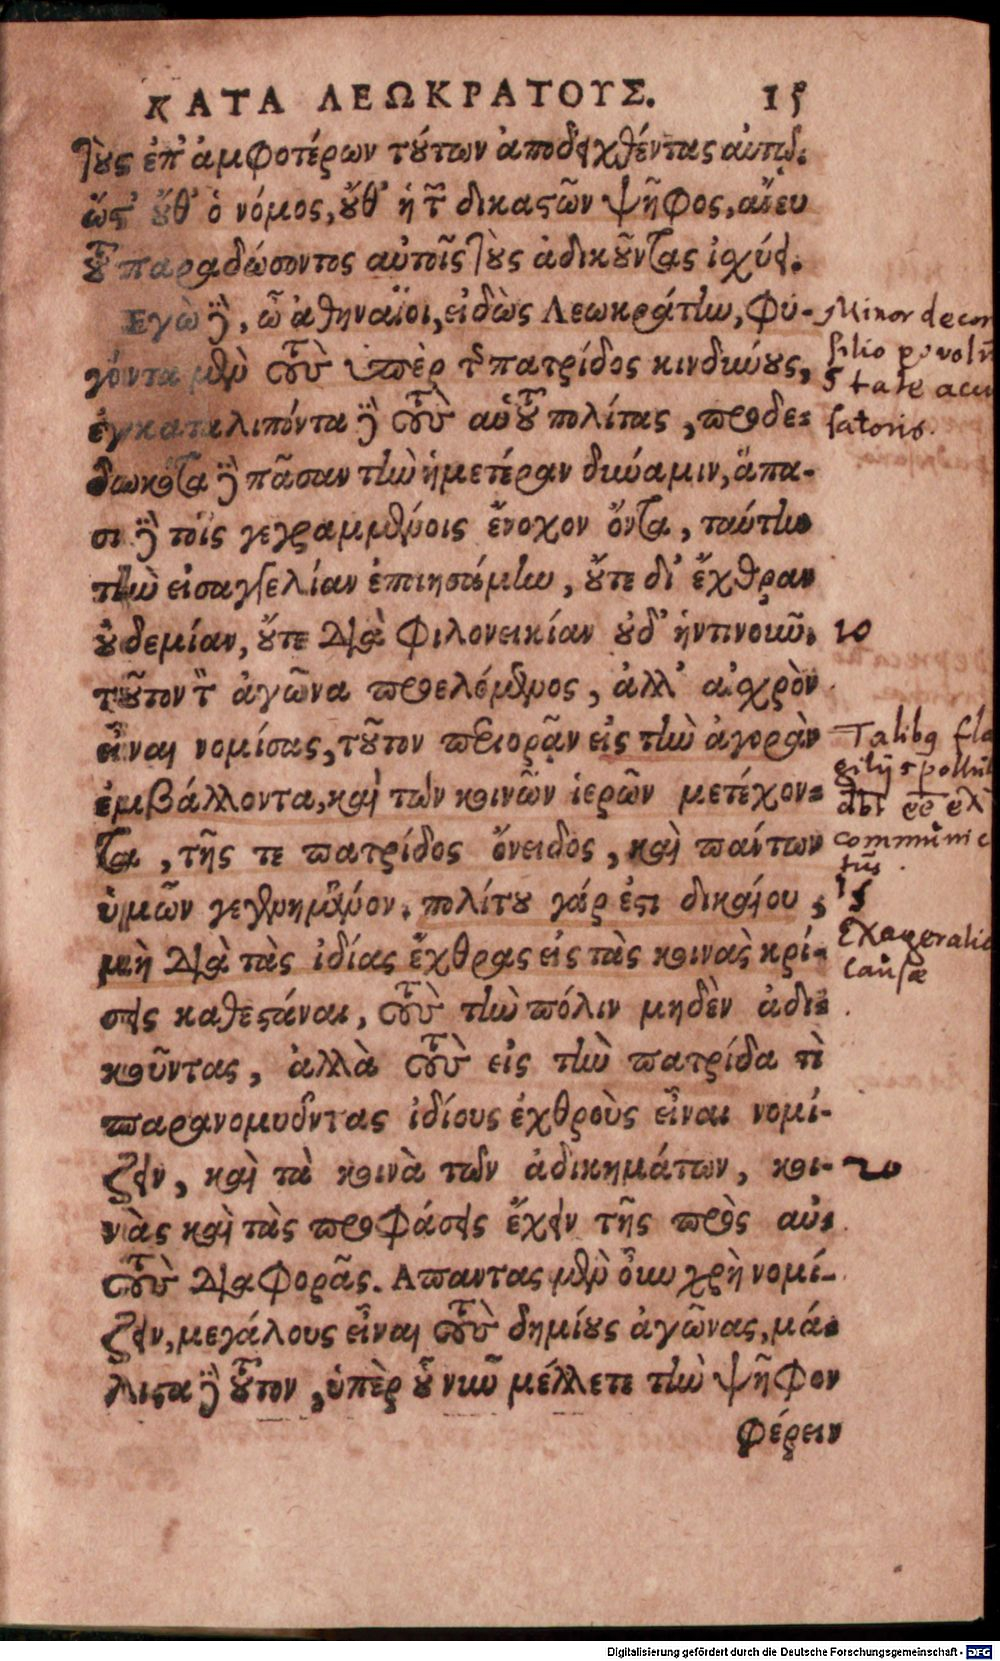 ΚΑΤΑ ΛΕΩΚΡΑΤΟΥΣ. 15
τοὺς ἐπ' ἀμφοτέρων τούτων ἀποδειχθέντας
ὥστ' οὔθ' ὁ νόμος, οὔθ' ἡ τῶν δικαστῶν ψῆφος, ἄνευ
τοῦ παραδώσοντος αὐτοῖς τοὺς ἀδικοῦντας ἰσχύει.
Εγὼ δὲ, ὦ ἀθηναῖοι, εἰδὼς Λεωκράτην, φυ-
γόντα μὲν τοὺς ὑπὲρ τῆς πατρίδος κινδύνους,
ἐγκαταλιπόντα δὲ τοὺς αὑτοῦ πολίτας, προδε-
δωκότα δὲ πᾶσαν τὴν ἡμετέραν δύναμιν, ἅπα-
σι δὲ τοῖς γεγραμμένοις ἔνοχον ὄντα, ταύτην
τὴν εἰσαγγελίαν ἐποιησάμην, οὔτε δι' ἔχθραν
οὐδεμίαν, οὔτε διὰ φιλονεικίαν οὐδ' ἡντινοῦν 10
τοῦτον τὸν ἀγῶνα προελόμενος, ἀλλ' αἰσχρὸν
εἶναι νομίσας, τοῦτον περιορᾷν εἰς τὴν ἀγορὰν
ἐμβάλλοντα, καὶ τῶν κοινῶν ἱερῶν μετέχον-
τα, τῆς τε πατρίδος ὄνειδος, καὶ πάντων
ὑμῶν γεγενημένον. πολίτου γάρ ἐστι δικαίου, 15
μὴ διὰ τὰς ἰδίας ἔχθρας εἰς τὰς κοινὰς κρί-
σεις καθεστάναι, τοὺς τὴν πόλιν μηδὲν ἀδι-
κοῦντας, ἀλλὰ τοὺς εἰς τὴν πατρίδα τὶ
παρανομοῦντας ἰδίους ἐχθροὺς εἶναι νομί-
ζειν, καὶ τὰ κοινὰ τῶν ἀδικημάτων, κοι- 20
νὰς καὶ τὰς προφάσεις ἔχειν τῆς πρὸς αὐ-
τοὺς διαφορᾶς. Απαντας μὲν οὖν χρὴ νομί-
ζειν, μεγάλους εἶναι τοὺς δημίους ἀγῶνας, μά-
λιστα δὲ τοῦτον, ὑπὲρ οὗ νῦν μέλλετε τὴν ψῆφον
φέρειν
Minor de con
silio
state accu
satoris.
Talibq fla
communic
Exageratio
causæ
Digitalisierung gefördert durch die Deutsche Forschungsgemeinschaft - DFG